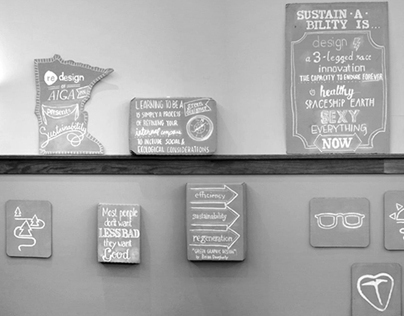 re design
AIGA
presents
Sustainability
LEARNING TO BE A
green designer
IS SIMPLY A PROCESS
OF REFINING YOUR
internal compass
TO INCLUDE SOCIAL &
ECOLOGICAL CONSIDERATIONS
SUSTAIN·A·
BILITY IS...
design
a 3-legged race
innovation
THE CAPACITY TO ENDURE FOREVER
healthy
SPACESHIP EARTH
SEXY
EVERYTHING
NOW
Most people
don't want
LESS BAD
they want
Good
efficiency
sustainability
regeneration
"GREEN GRAPHIC DESIGN"
by Brian Dougherty